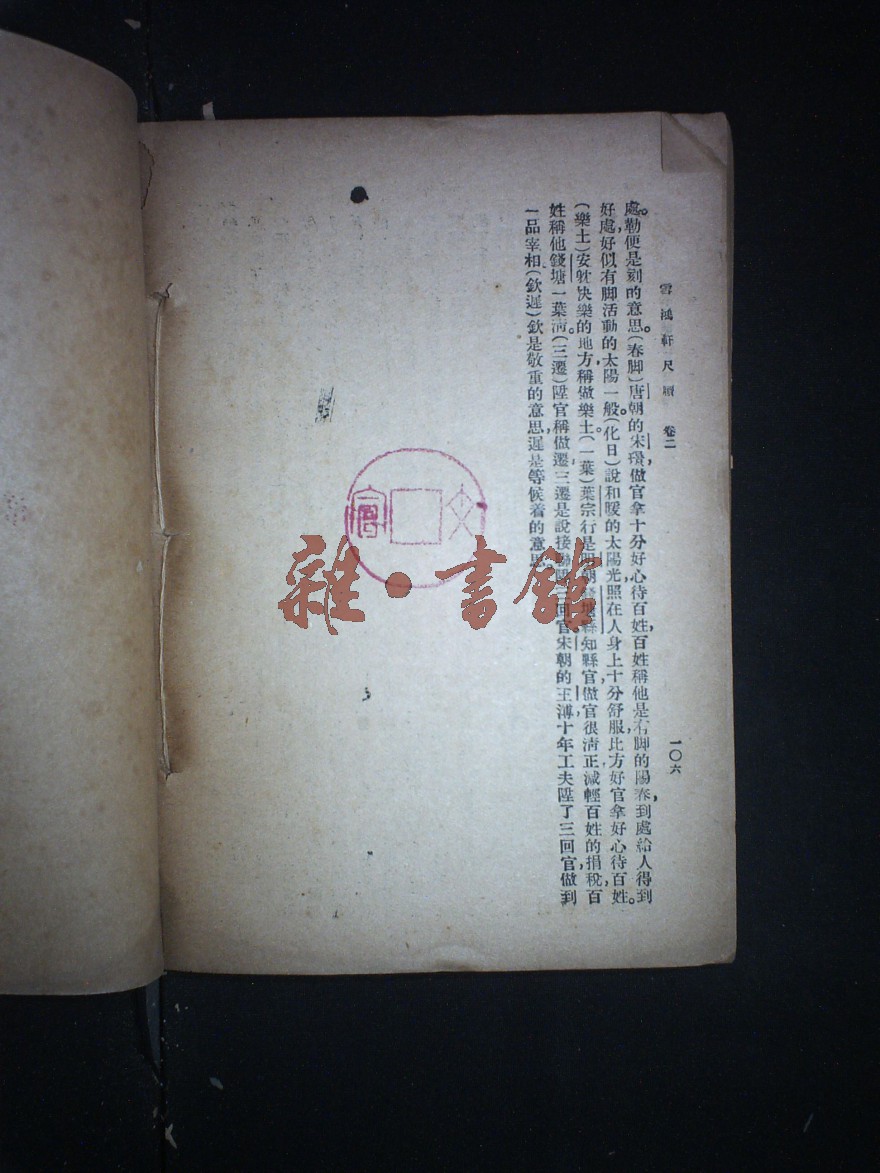 雪鴻軒尺牘 卷二
一〇六
處。勒便是刻的意思。(春脚)唐朝的宋璟,做官拿十分好心待百姓,百姓稱他是有脚的陽春,到處給人得到
好處,好似有脚活動的太陽一般。(化日)說和暖的太陽光照在人身上十分舒服,比方好官拿好心待百姓。
(樂土)安耽快樂的地方,稱做樂土。(一葉)葉宗行是明朝錢塘縣知縣官,做官很淸正,減輕百姓的捐稅,百
姓稱他錢塘一葉淸。(三遷)陞官稱做遷,三遷是說接連陞三回官,宋朝的王溥,十年工夫,陞了三回官,做到
一品宰相。(欽遲)欽是敬重的意思,遲是等候着的意思。
雜·書館